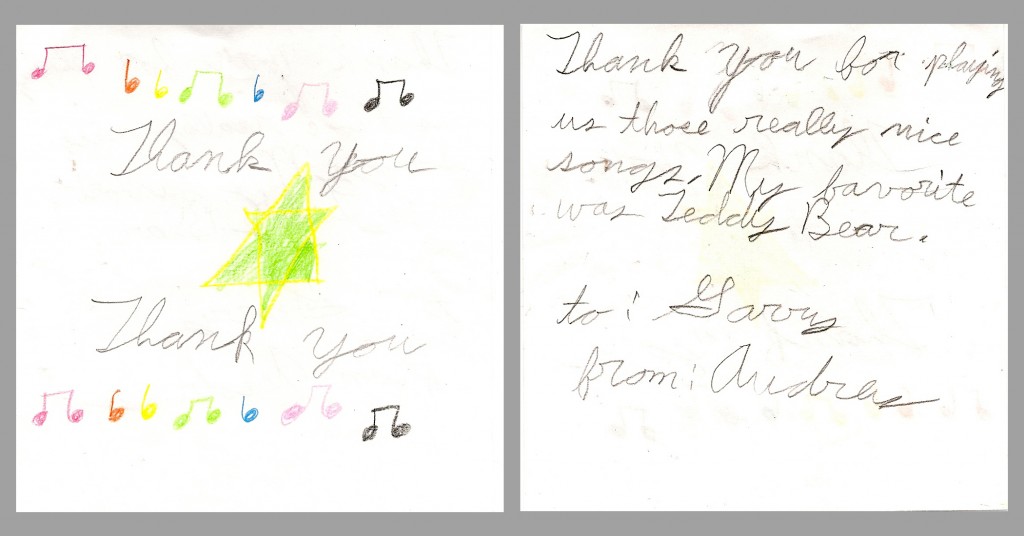 Thank you
Thank you
Thank you for playing
us those really nice
songs. My favorite
was Teddy Bear.
to: Garry
from: Andrea